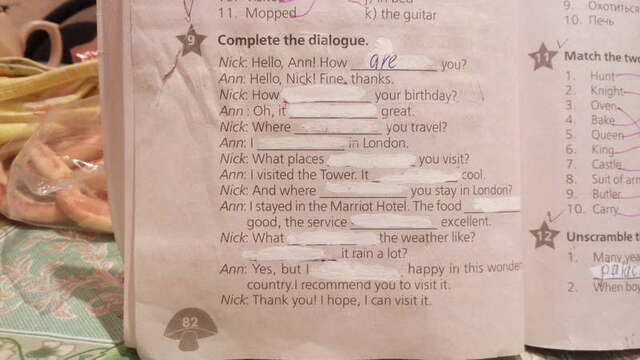 11. Mopped k) the guitar
9 Complete the dialogue.
Nick: Hello, Ann! How are you?
Ann: Hello, Nick! Fine, thanks.
Nick: How your birthday?
Ann: Oh, it great.
Nick: Where you travel?
Ann: I in London.
Nick: What places you visit?
Ann: I visited the Tower. It cool.
Nick: And where you stay in London?
Ann: I stayed in the Marriot Hotel. The food
good, the service excellent.
Nick: What the weather like?
it rain a lot?
Ann: Yes, but I happy in this wonder
country. I recommend you to visit it.
Nick: Thank you! I hope, I can visit it.
82
9. Охотиться
10. Печь
11 Match the two
1. Hunt
2. Knight
3. Oven
4. Bake
5. Queen
6. King
7. Castle
8. Suit of arm
9. Butler
10. Carry
12 Unscramble th
1. Many yea
2. When boy